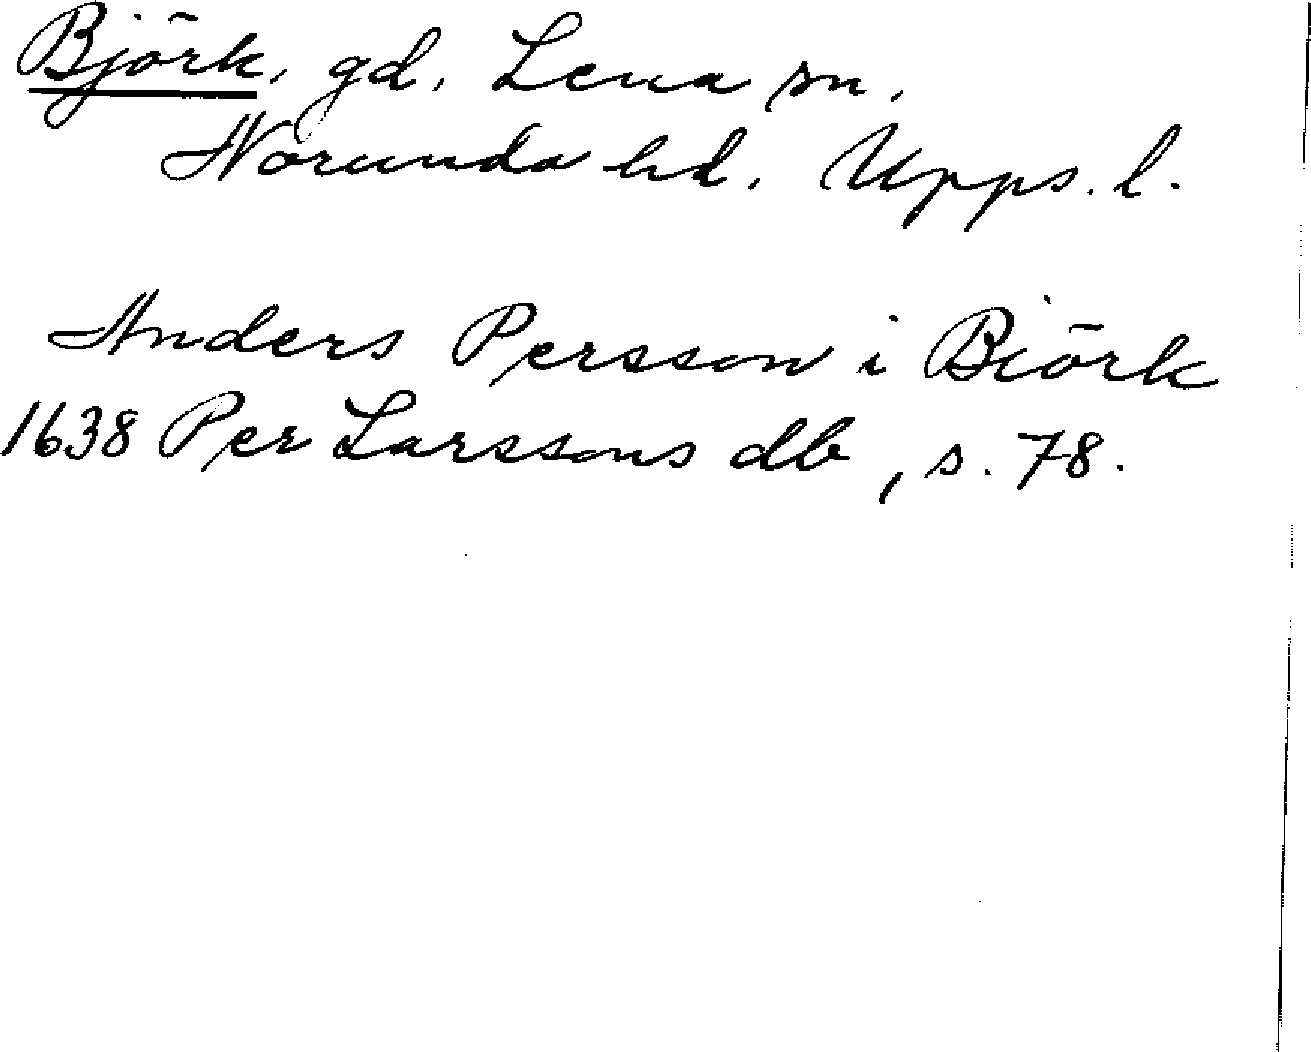 Björk, gd, Lena sn,
Norunda hd, Upps. l.
Anders Persson i Biörk
1638 Per Larssons db, s. 78.